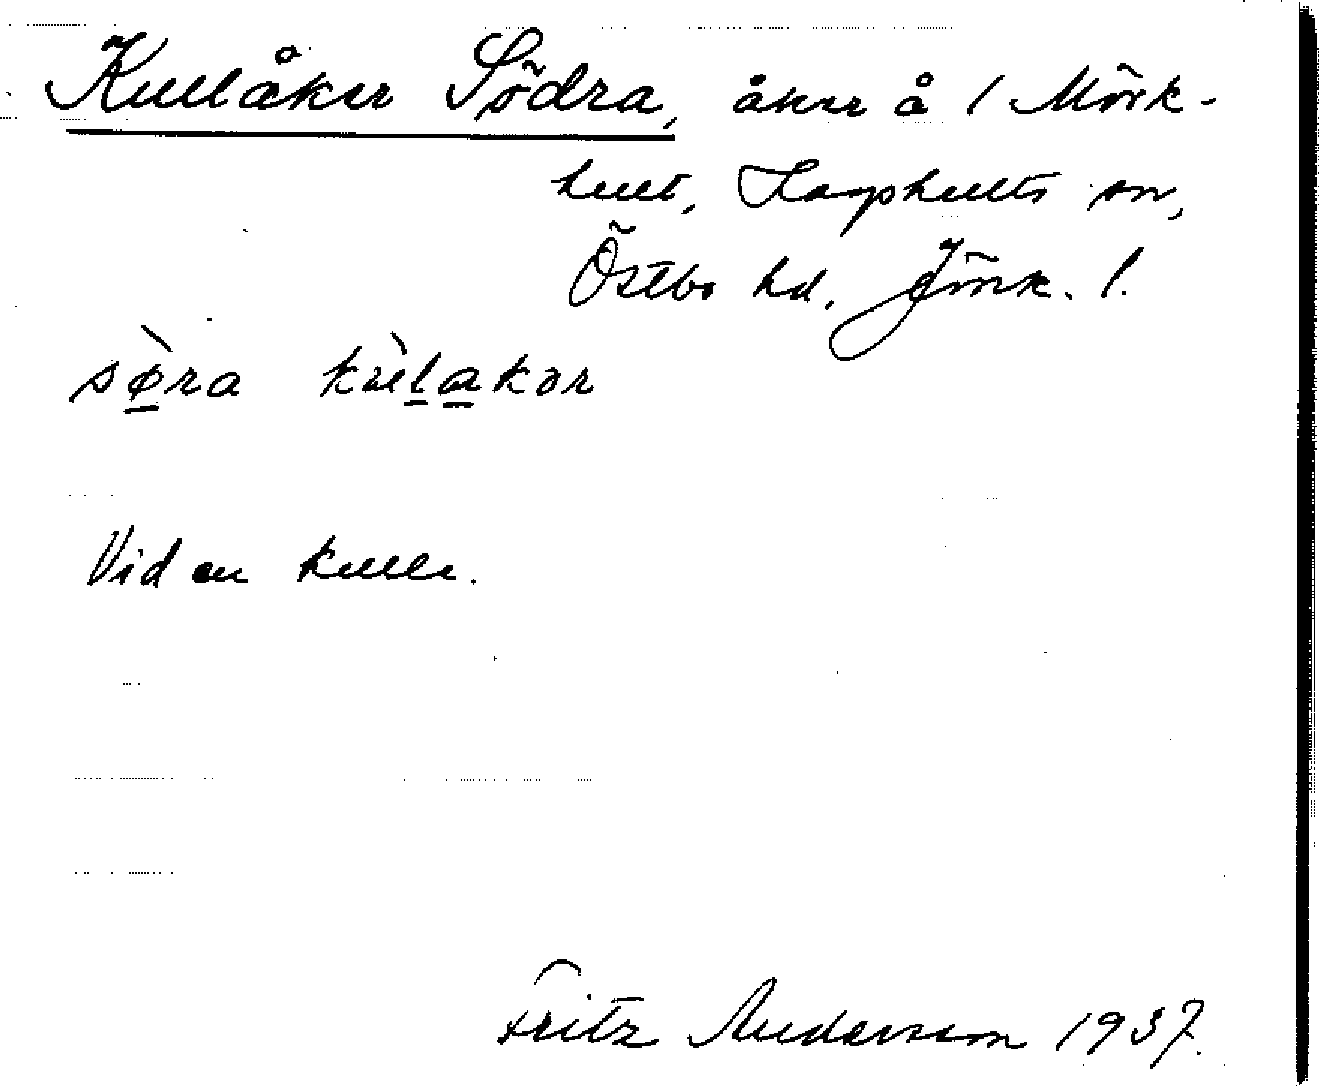 Kullåker Södra, åker å 1 Mörk-
hult, Kapphults sn,
Östbo hd. Jönk. l.
søra kulakər
Vid en kulle.
Fritz Andersson 1937.